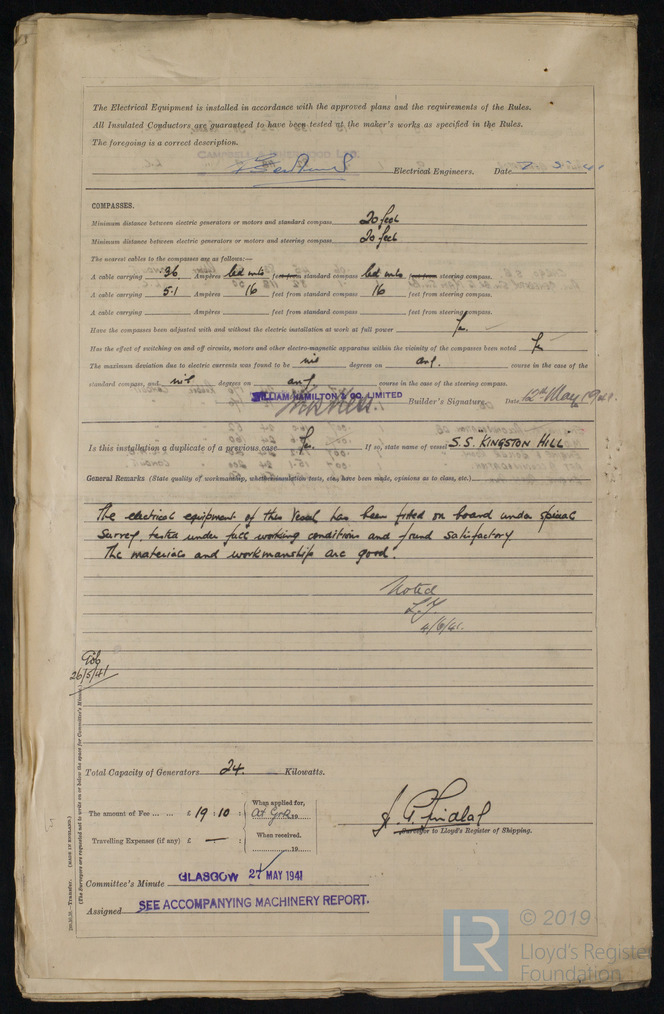 The Electrical Equipment is installed in accordance with the approved plans and the requirements of the Rules.
All Insulated Conductors are guaranteed to have been tested at the maker's works as specified in the Rules.
The foregoing is a correct description.
Electrical Engineers. Date
COMPASSES.
Minimum distance between electric generators or motors and standard compass 20 feet
Minimum distance between electric generators or motors and steering compass 20 feet
The nearest cables to the compasses are as follows:—
A cable carrying .36 Ampères led into feet from standard compass led into feet from steering compass.
A cable carrying 5.1 Ampères 16 feet from standard compass 16 feet from steering compass.
A cable carrying Ampères feet from standard compass feet from steering compass.
Have the compasses been adjusted with and without the electric installation at work at full power
Has the effect of switching on and off circuits, motors and other electro-magnetic apparatus within the vicinity of the compasses been noted
The maximum deviation due to electric currents was found to be nil degrees on any course in the case of the
standard compass, and nil degrees on any course in the case of the steering compass.
WILLIAM HAMILTON & CO. LIMITED
Builder's Signature. Date 12th May 1941.
Is this installation a duplicate of a previous case If so, state name of vessel S.S. KINGSTON HILL
General Remarks (State quality of workmanship, whether insulation tests, etc., have been made, opinions as to class, etc.)
The electrical equipment of this vessel has been fitted on board under special
survey, tested under full working conditions and found satisfactory.
The materials and workmanship are good.
Noted
4/6/41.
26/5/41
Total Capacity of Generators 24. Kilowatts.
The amount of Fee ... ... £ 19 : 10 :
When applied for,
19
Travelling Expenses (if any) £ — :
When received,
19
Surveyor to Lloyd's Register of Shipping.
Committee's Minute GLASGOW 27 MAY 1941
Assigned SEE ACCOMPANYING MACHINERY REPORT.
(The Surveyors are requested not to write on or below the space for Committee's Minute.)
Transfer. (MADE IN ENGLAND.)
LR © 2019
Lloyd's Register
Foundation